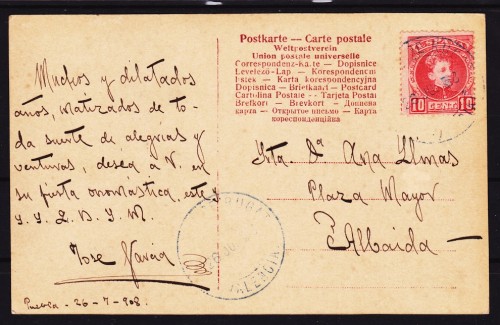 Postkarte — Carte postale
Weltpostverein
Union postale universelle
Correspondenz-Karte — Dopisnice
Levelező-Lap — Korespondencni
listek — Karta korespondencyjna
Dopisnica — Briefkaart — Postcard
Cartolina Postale — Tarjeta Postal
Brefkort — Brevkort — Дописна
карта — Открытое письмо — Карта
корреспонденційна
10 CENT. 10
Muchos y dilatados
años, matizados de to-
da suerte de alegrias y
venturas, desea a V. en
su fiesta onomastica este y
S. S. Q. B. S. M.
Jose Garcia
Puebla - 26 - 7 - 908.
Srta. Dª Ana Llinas
Plaza Mayor
Albaida
VALENCIA